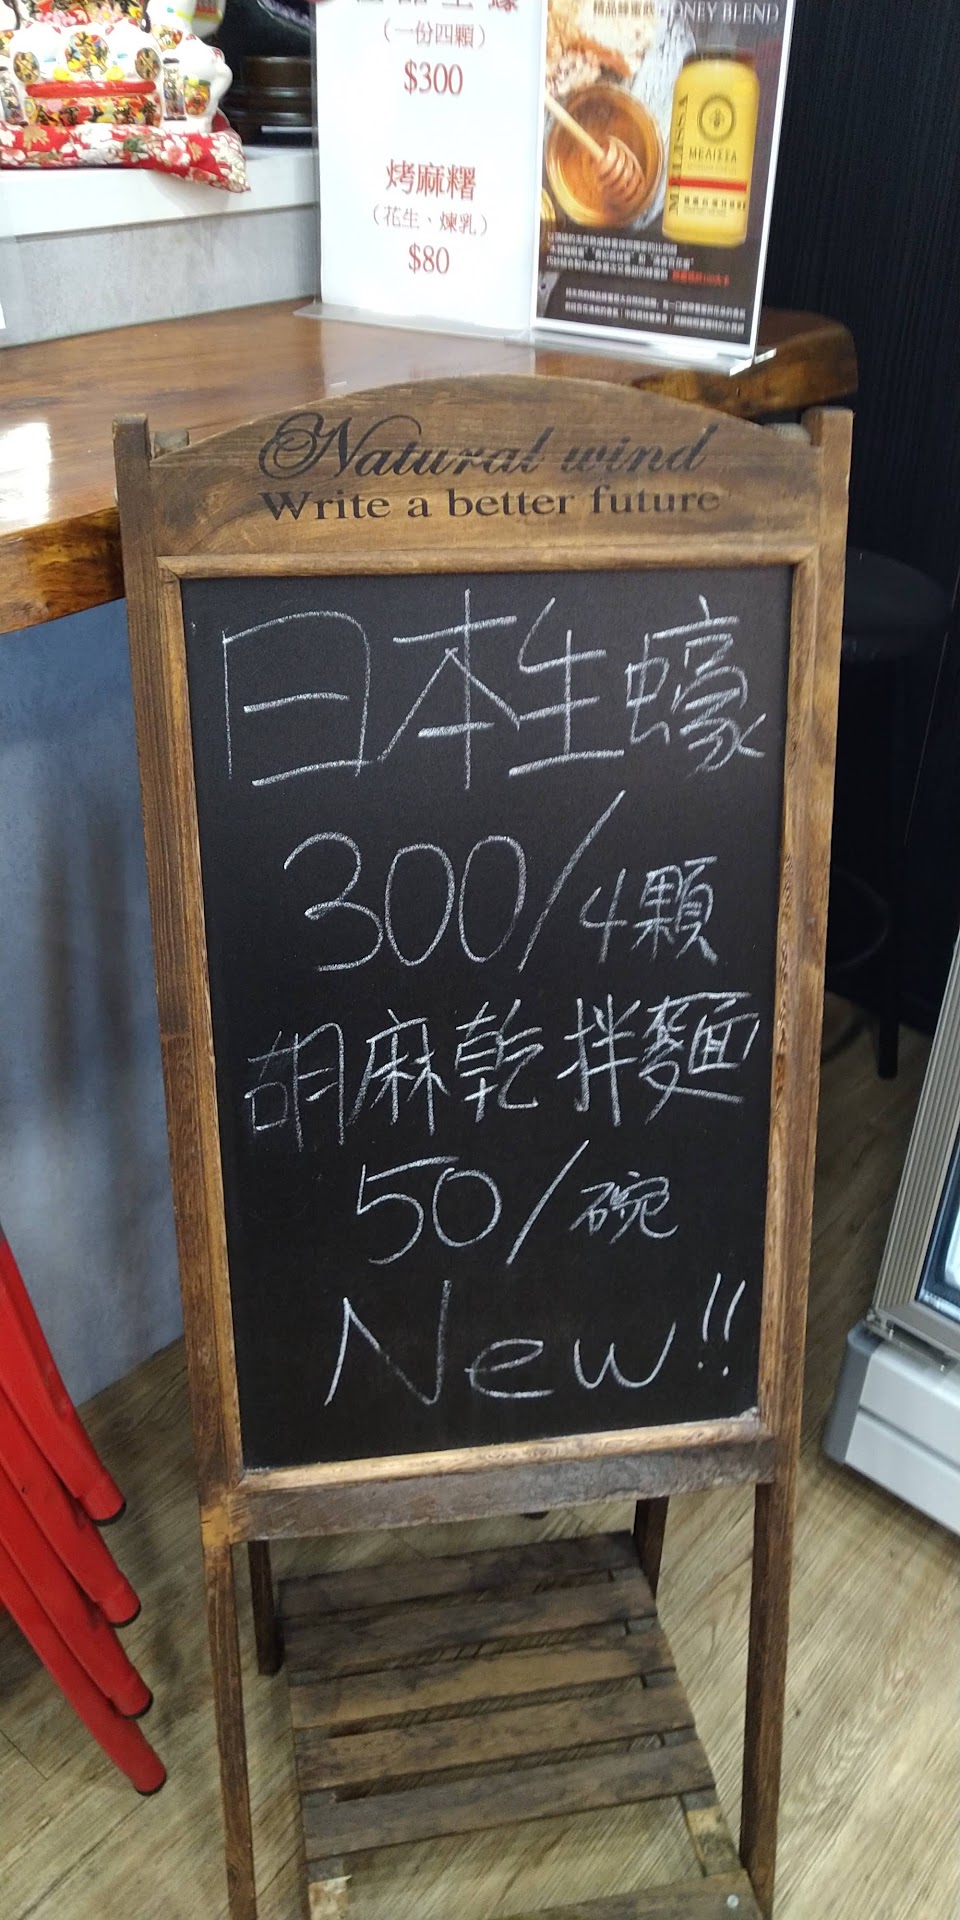 （一份四顆）
$300
烤麻糬
（花生、煉乳）
$80
精品蜂蜜飲 HONEY BLEND
MELISSA
MEΛISSA
Natural wind
Write a better future
日本生蠔
300/4顆
胡麻乾拌麵
50/碗
New!!